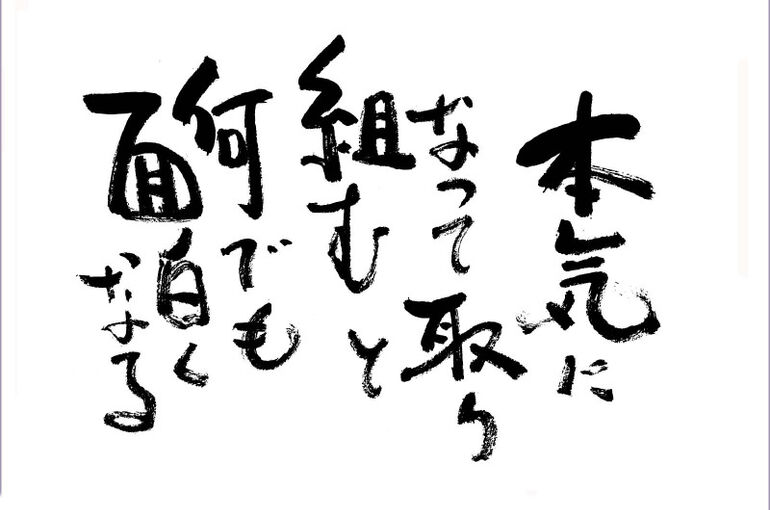 本気に
なって取り
組むと
何でも
面白く
なる